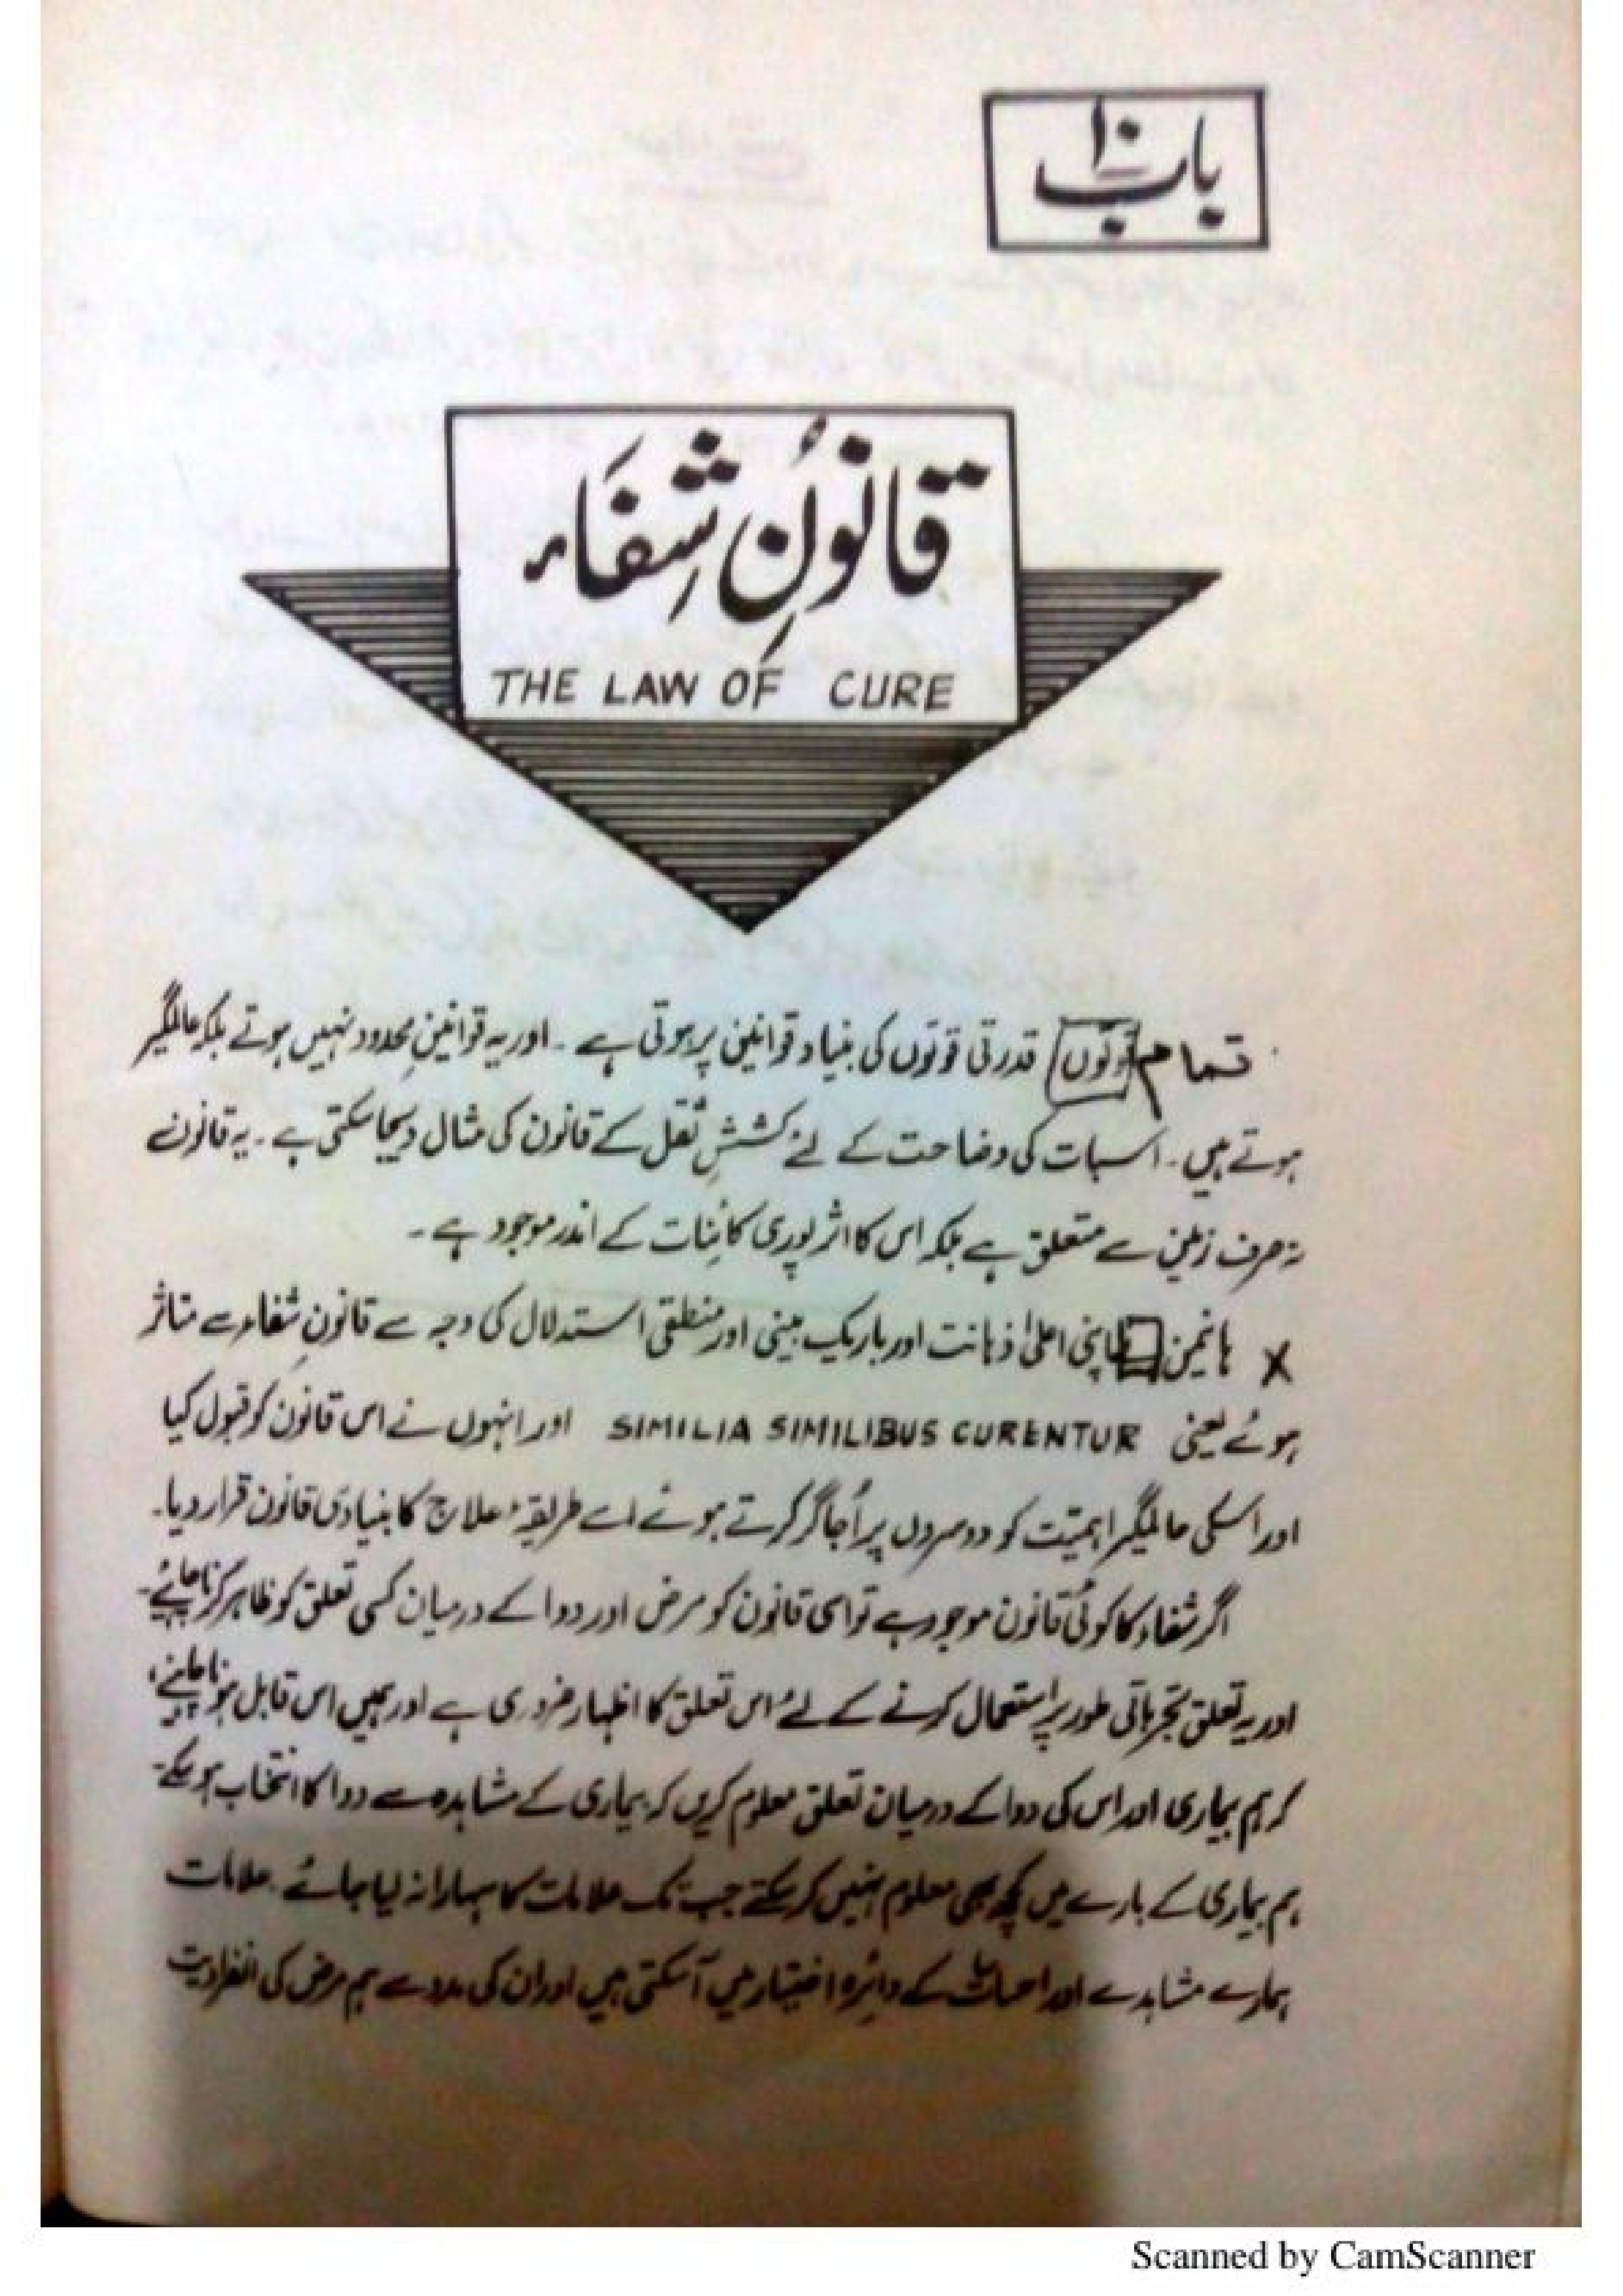 باب ۱۰
قانونِ شفاء
THE LAW OF CURE
تمام قدرتی قوتوں کی بنیاد قوانین پر ہوتی ہے ۔ اور یہ قوانین محدود نہیں ہوتے بلکہ عالمگیر
ہوتے ہیں ۔ اسبات کی وضاحت کے لئے کششِ ثقل کے قانون کی مثال دیجاسکتی ہے ۔ یہ قانون
نہ صرف زمین سے متعلق ہے بلکہ اس کا اثر پوری کائنات کے اندر موجود ہے ۔
x ہانمین اپنی اعلیٰ ذہانت اور باریک بینی اور منطقی استدلال کی وجہ سے قانونِ شفاء سے متاثر
ہوئے یعنی SIMILIA SIMILIBUS CURENTUR اور انہوں نے اس قانون کو قبول کیا
اور اسکی عالمگیر اہمیّت کو دوسروں پر اُجاگر کرتے ہوئے اسے طریقۂ علاج کا بنیادی قانون قرار دیا ۔
اگر شفاء کا کوئی قانون موجود ہے تو اسی قانون کو مرض اور دوا کے درمیان کسی تعلق کو ظاہر کرنا چاہئے ۔
اور یہ تعلق تجرباتی طور پر استعمال کرنے کے لئے اس تعلق کا اظہار ضروری ہے اور ہمیں اس قابل ہونا چاہئیے،
کہ ہم بیماری اور اس کی دوا کے درمیان تعلق معلوم کریں کہ بیماری کے مشاہدہ سے دوا کا انتخاب ہو سکے
ہم بیماری کے بارے میں کچھ بھی معلوم نہیں کر سکتے جب تک علامات کا سہارا نہ لیا جائے ۔ علامات
ہمارے مشاہدے اور احساسات کے دائرہ اختیار میں آسکتی ہیں اور ان کی مدد سے ہم مرض کی انفرادیت
Scanned by CamScanner